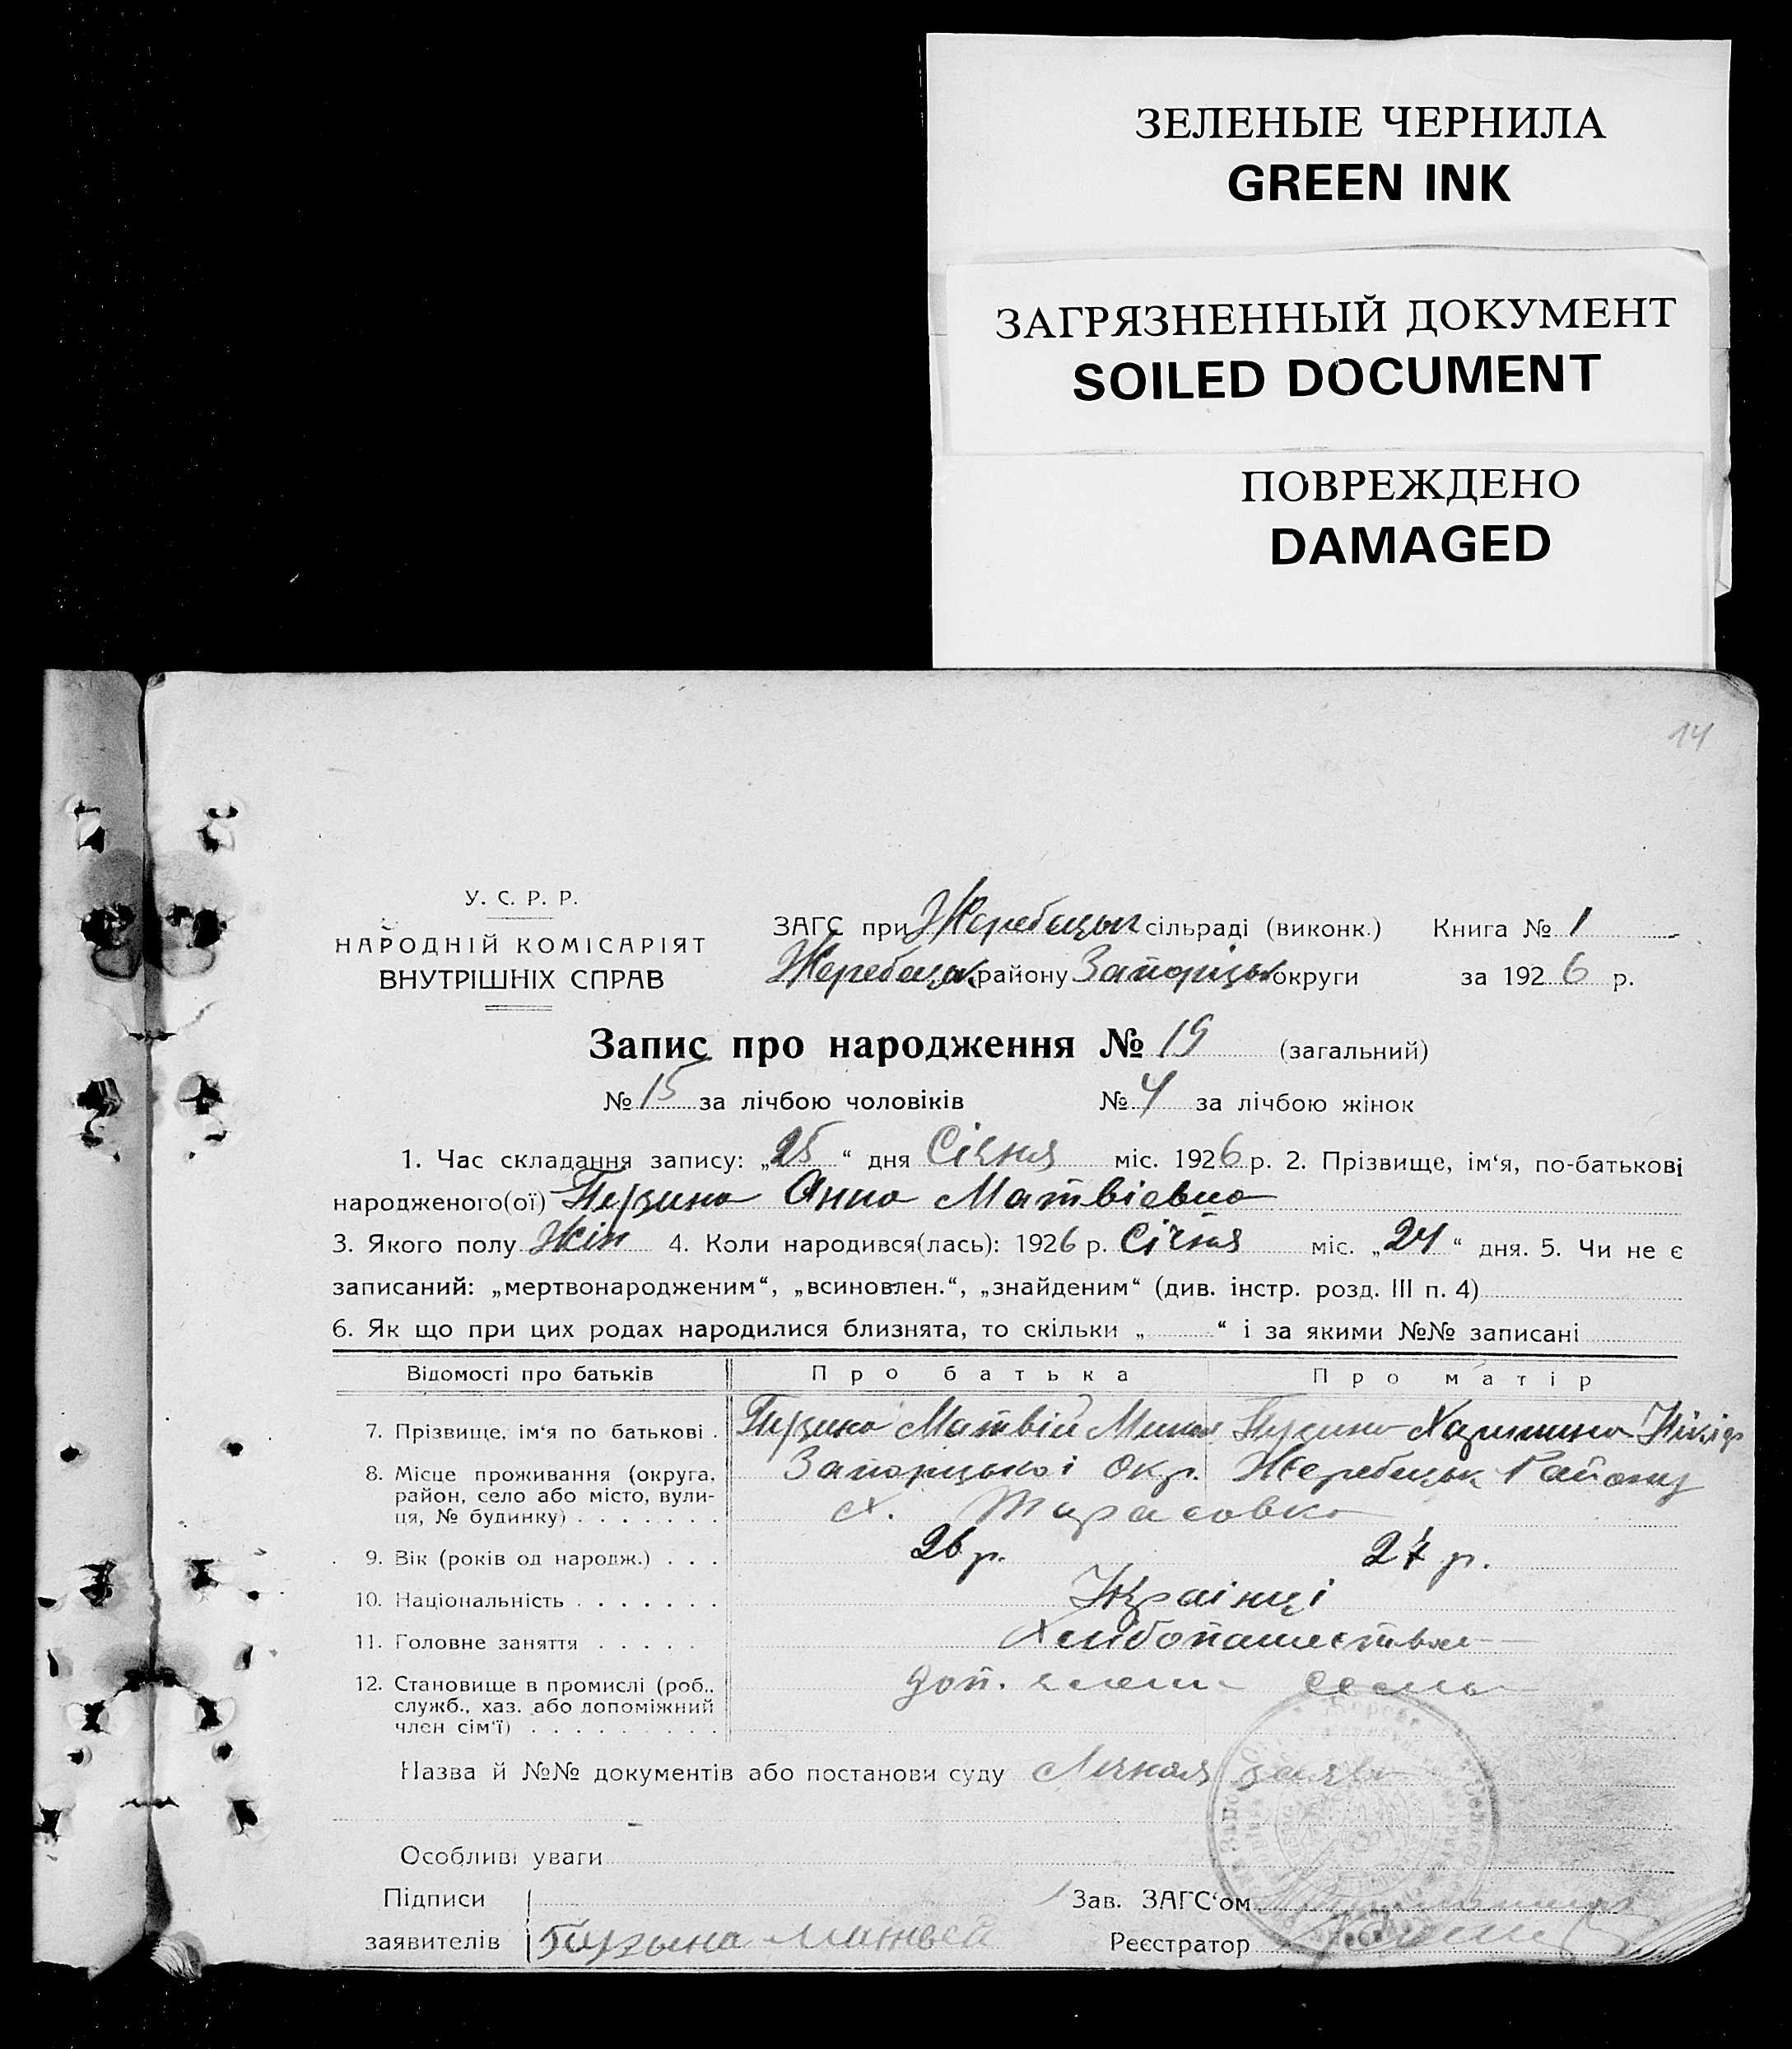 ЗЕЛЕНЫЕ ЧЕРНИЛА
GREEN INK
ЗАГРЯЗНЕННЫЙ ДОКУМЕНТ
SOILED DOCUMENT
ПОВРЕЖДЕНО
DAMAGED
14
У. С. Р. Р.
НАРОДНІЙ КОМІСАРІЯТ
ВНУТРІШНІХ СПРАВ
ЗАГС при Жеребецьк сільраді (виконк.) Книга № 1
Жеребецьк району Запоріцьк округи за 1926 р.
Запис про народження № 19 (загальний)
№ 15 за лічбою чоловіків № 4 за лічбою жінок
1. Час складання запису: „25“ дня Січня міс. 1926 р. 2. Прізвище, ім‘я, по-батькові
народженого(ої) Пузина Анна Матвіевна
3. Якого полу Жін 4. Коли народився(лась): 1926 р. Січня міс. „24“ дня. 5. Чи не є
записаний: „мертвонародженим“, „всиновлен.“, „знайденим“ (див. інстр. розд. III п. 4)
6. Як що при цих родах народилися близнята, то скільки „ “ і за якими №№ записані
Відомості про батьків Про батька Про матір
7. Прізвище, ім‘я по батькові . Пузина Матвій Микол Пузина Харитина Нікіф
8. Місце проживання (округа, Запоріцькоі Окр. Жеребецьк Району
район, село або місто, вули-
ця, № будинку) . . . . . . . х. Тарасовка
9. Вік (років од народж.) . . . 26 р. 27 р.
10. Національність . . . . . . . Українці
11. Головне заняття . . . . . Хлибопашество
12. Становище в промислі (роб., доп. члени семьи
служб., хаз. або допоміжний
член сім‘ї) . . . . . . . . .
Назва й №№ документів або постанови суду Личная заява
Особливі уваги
Підписи Зав. ЗАГС‘ом
заявителів Пузына Матвей Реєстратор